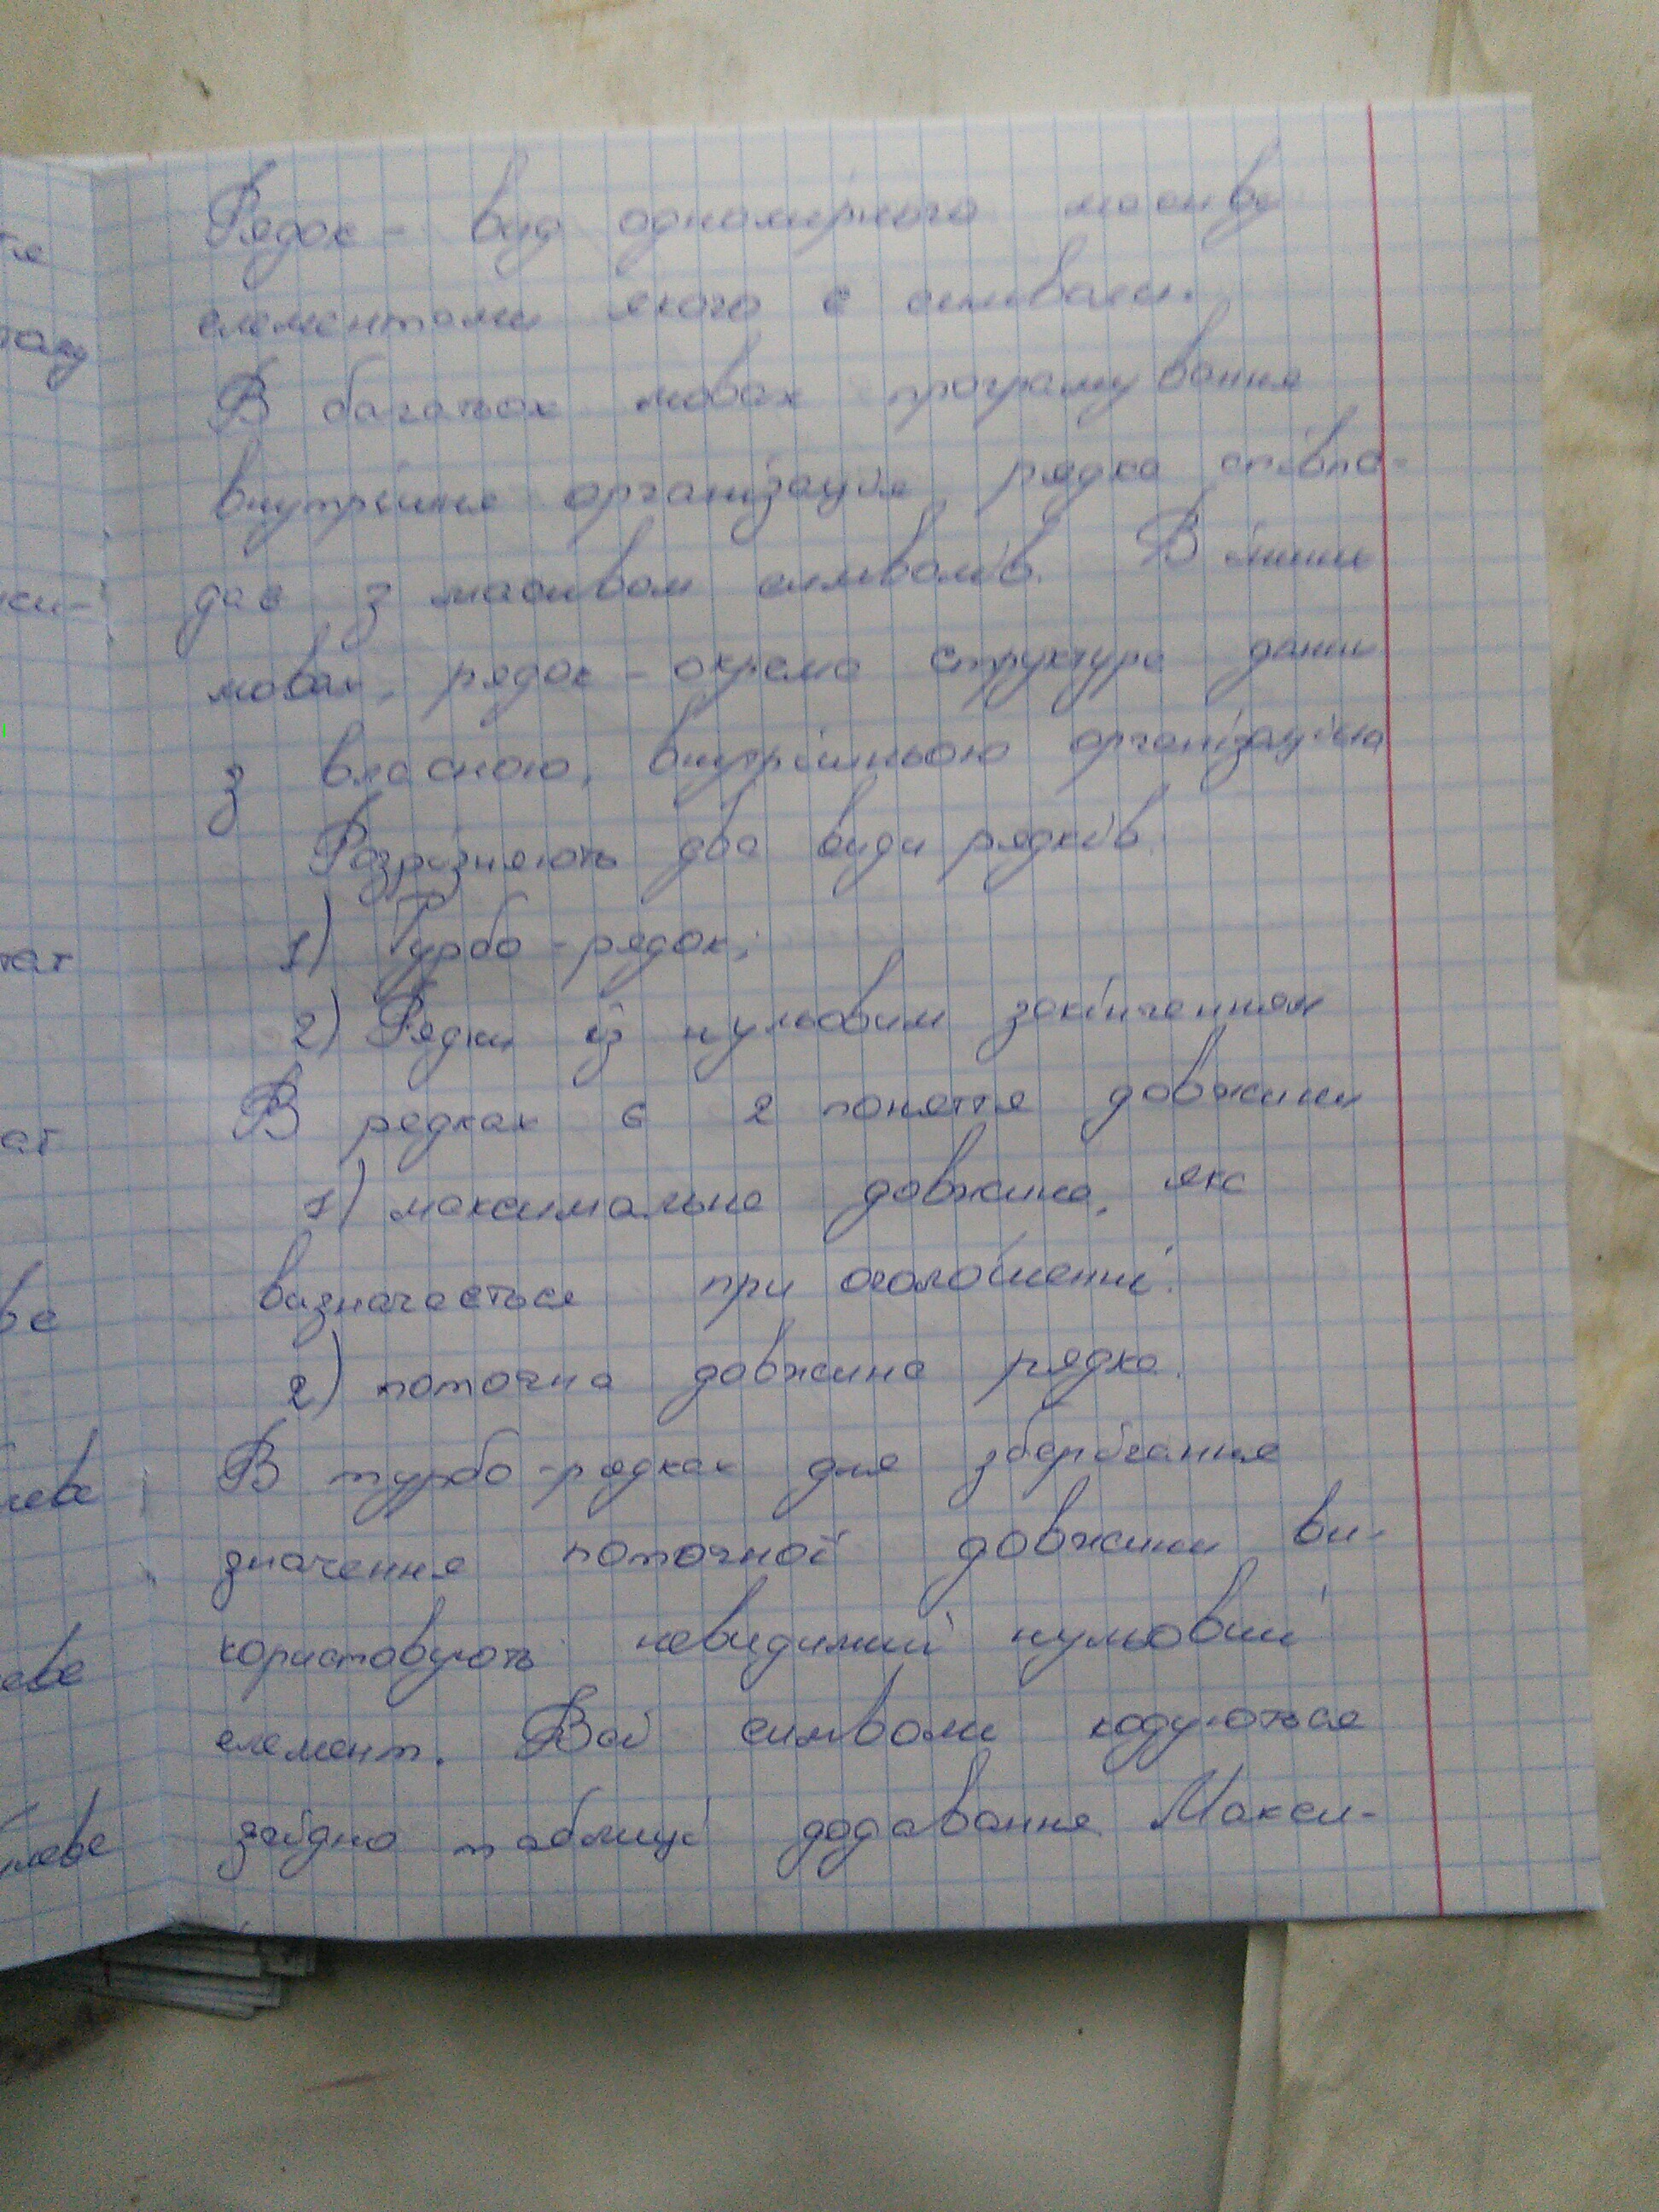 Рядок - вид одномірного масиву
елементами якого є символи.
В багатьох мовах програмування
внутрішня організація рядка співпа-
дає з масивом символів. В інших
мовах, рядок - окрема структура даних
з власною, внутрішньою організацією
Розрізняють два види рядків.
1) Турбо-рядок;
2) Рядки із нульовим закінченням
В рядках є 2 поняття довжини
1) максимальна довжина, яка
визначається при оголошенні.
2) поточна довжина рядка.
В турбо-рядках для зберігання
значення поточної довжини ви-
користовують невидимий нульовий
елемент. Всі символи кодуються
згідно таблиці додавання. Макси-
тат
ат